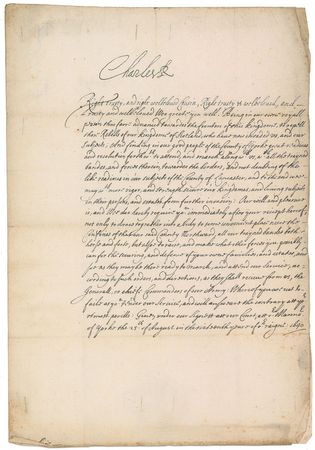 Charles R
Right trusty, and right welbeloued Cousin, Right trusty & welbeloued, and
Trusty and welbeloued Wee greete you well. Being in our owne royall
person thus farr aduanced towards the frontiers of this Kingdome, to repell
those Rebells of our Kingdome of Scotland, who haue now inuaded us, and our
subiects, And finding in our good people of the County of Yorke great
and resolution for this to attend, and march along with us, with all the trayned
bandes, and forces thereon towards the borders, and not doubting of the
like readines in our subiects of the County of Lancaster, and to the end wee
may with more vigor, and strength secure our Kingdomes, and louing subiects
in their persons, and estates from further iniuries: Our will and pleasure
is, and Wee doe hereby require you immediately after your receipt hereof,
not only to draw together such a body to some conuenient place neere the
of and County of Westmorland, all our trayned bandes both
horse and foote, but also to raise, and make what other forces you possibly
can for the securing, and defence of your owne families, and estates, and
for as they may be there ready to march, and attend our seruice, ac-
cording to such orders, and directions, as they shall receiue from us, the
Generall, or cheife Commanders of our Army: Whereof you are not to
faile as you tender our Seruice, and will answeare the contrary at your
utmost perills: Giuen under our Signett att our Court, att our Mannor
of Yorke the 25th of August, in the sixteenth yeare of our raigne. 1640